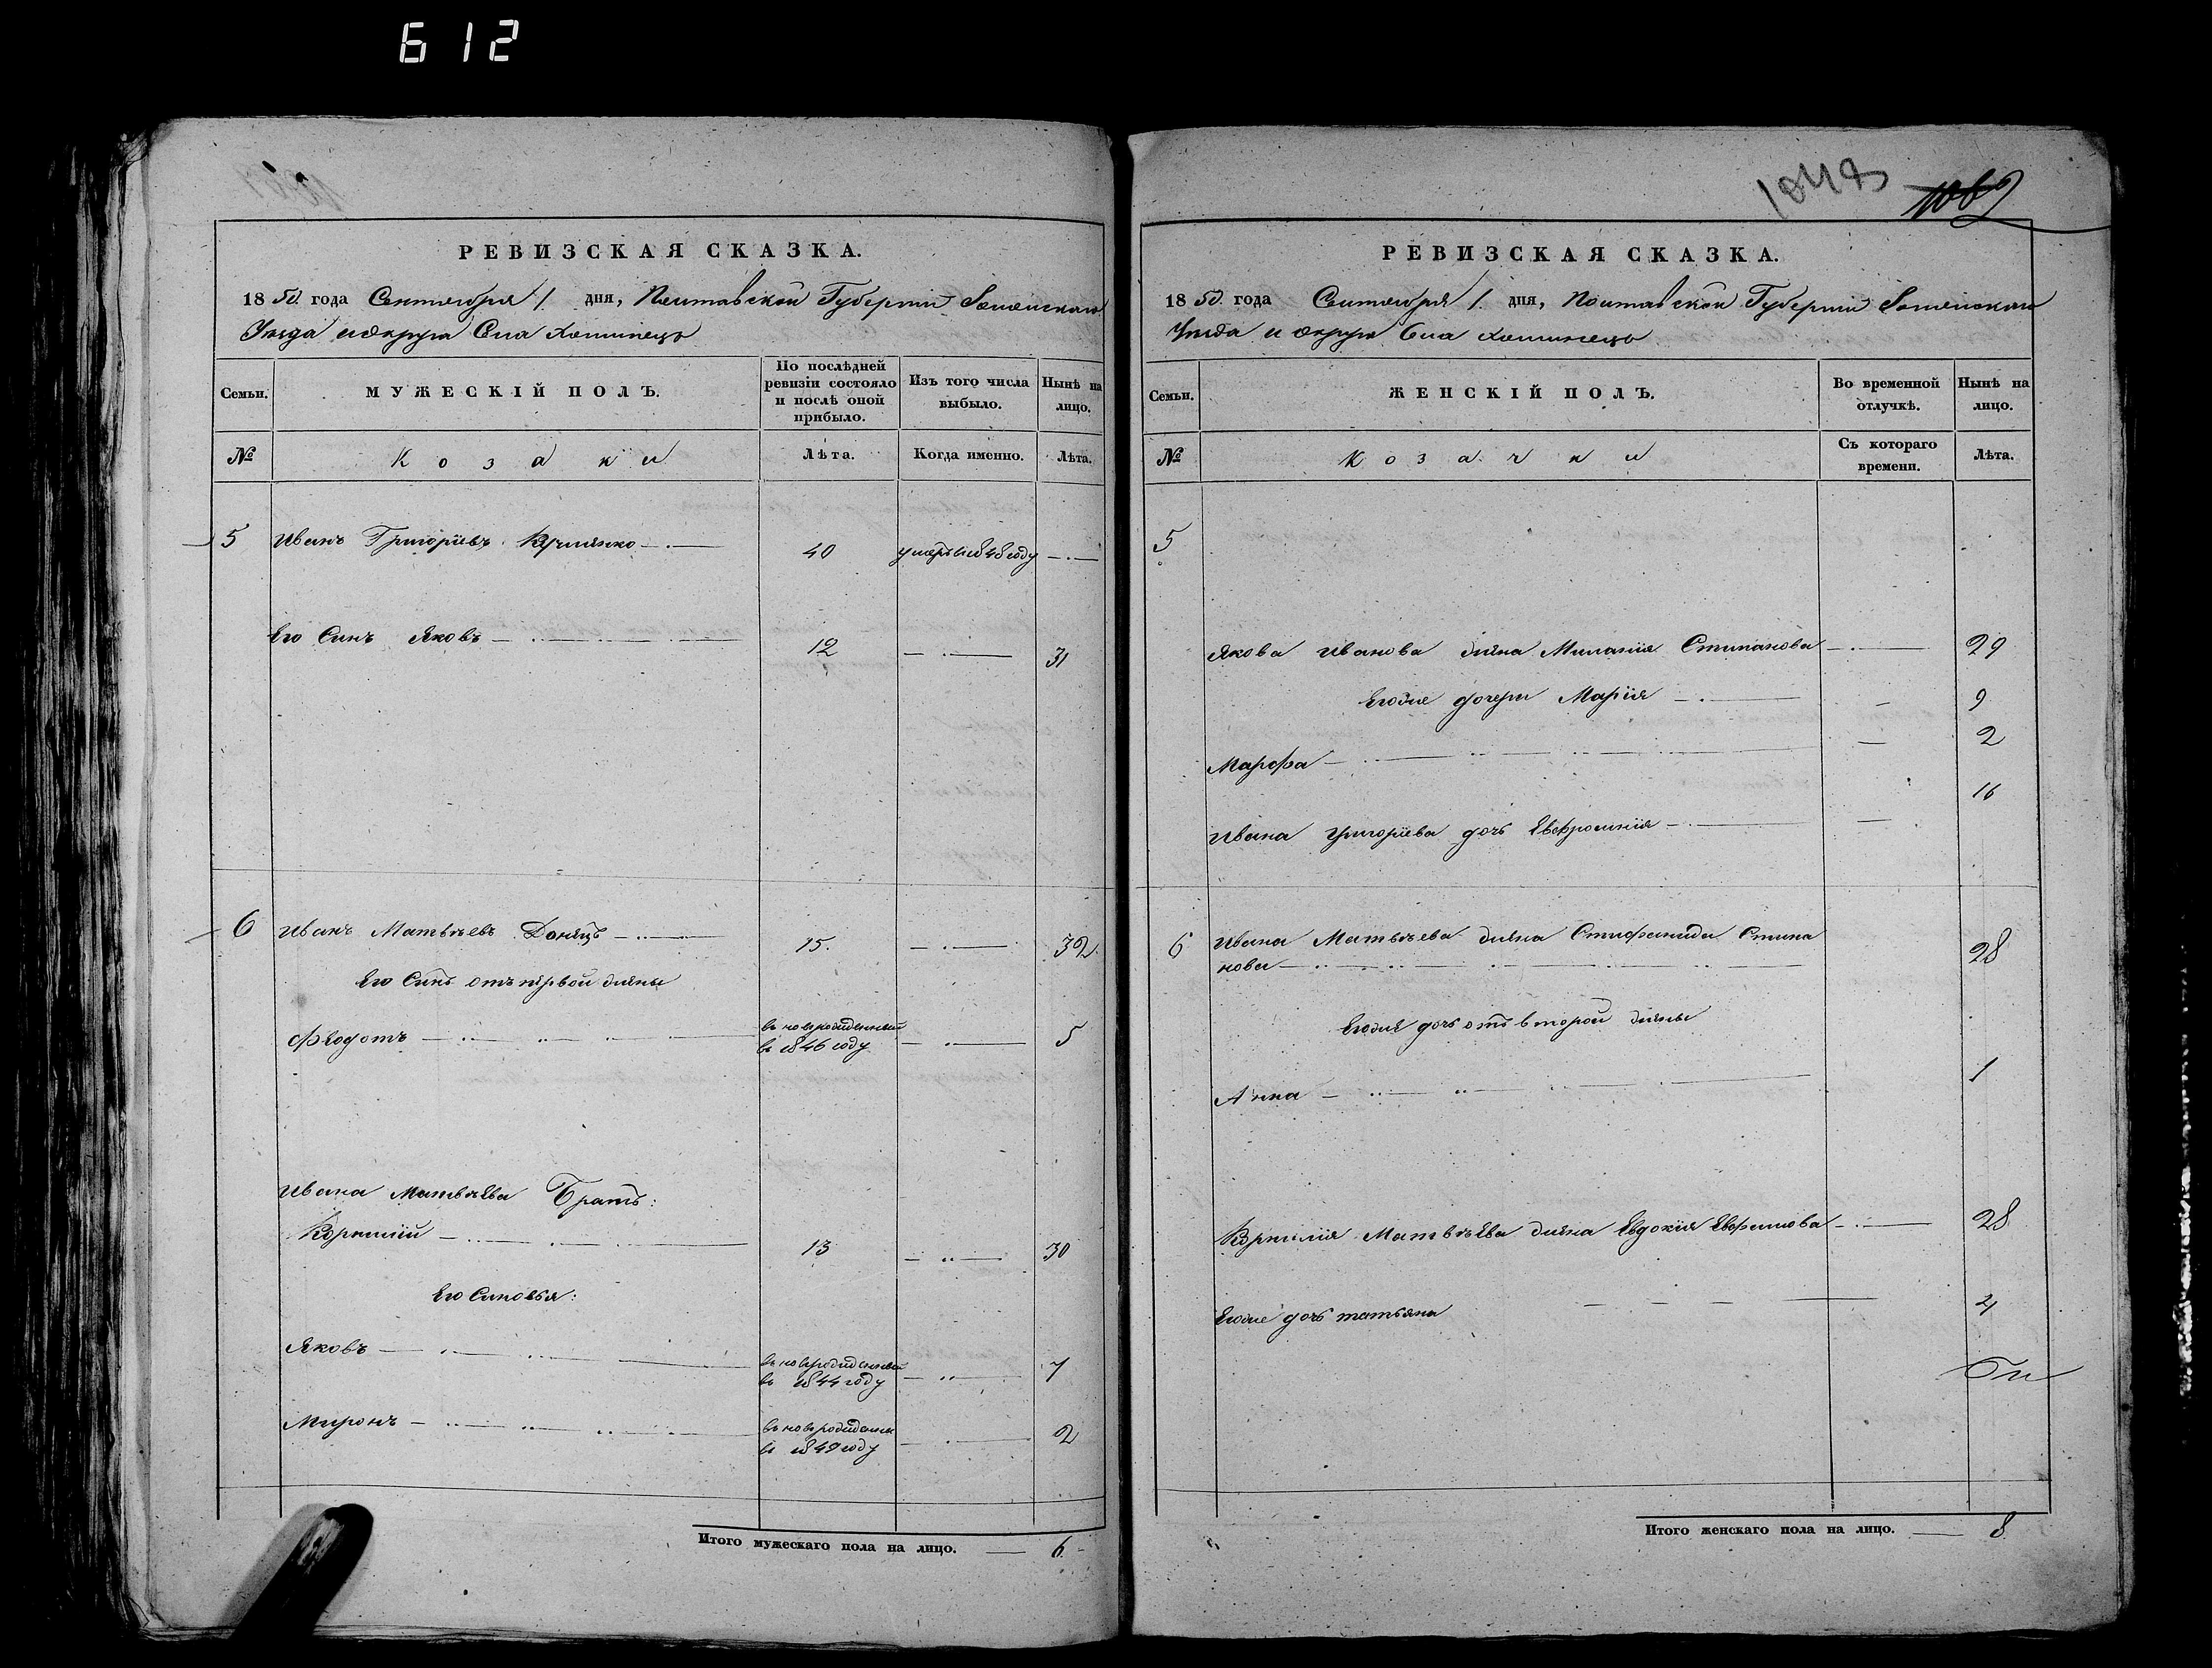 612
1048
РЕВИЗСКАЯ СКАЗКА.
18 50. года Сентября 1 дня, Полтавской Губернии Роменскаго
Уезда и округа Села Хоминецъ
Семьи.
МУЖЕСКІЙ ПОЛЪ.
По послѣдней ревизіи состояло и послѣ оной прибыло.
Изъ того числа выбыло.
Нынѣ на лицо.
№
Козаки
Лѣта.
Когда именно.
Лѣта.
5 Иванъ Григоріевъ 40 умеръ в 1848 году — . —
Его Синъ Яковъ 12 31
6 Иванъ Матвѣевъ Донецъ 15. 32.
Его Синъ отъ первой жены
Феодотъ вновърожденный в 1846 году 5
Ивана Матвѣева Братъ:
Корнилій 13 30
Его Синовья:
Яковъ вновърожденный в 1844 году 7
Миронъ вновърожденны в 1849 году 2
Итого мужескаго пола на лицо. — 6
РЕВИЗСКАЯ СКАЗКА.
18 50. года Сентября 1. дня, Полтавской Губерніи Роменскаго
Уезда и округа Села Хоминецъ
Семьи.
ЖЕНСКІЙ ПОЛЪ.
Во временной отлучкѣ.
Нынѣ на лицо.
№
Козачки
Съ котораго времени.
Лѣта.
5
Якова Иванова жена Миланія Стипанова 29
Егоже дочери Марія 9
Марфа 2
Ивана Григоріева дочь Евфросинія 16
6 Ивана Матвѣева жена Стифанида Стипа
нова 28
Егоже дочь отъ второй жены
Анна 1
Корнилія Матвѣева жена Евдокія Евфимова 28
Егоже дочь татьяна 4
Итого женскаго пола на лицо. — 8